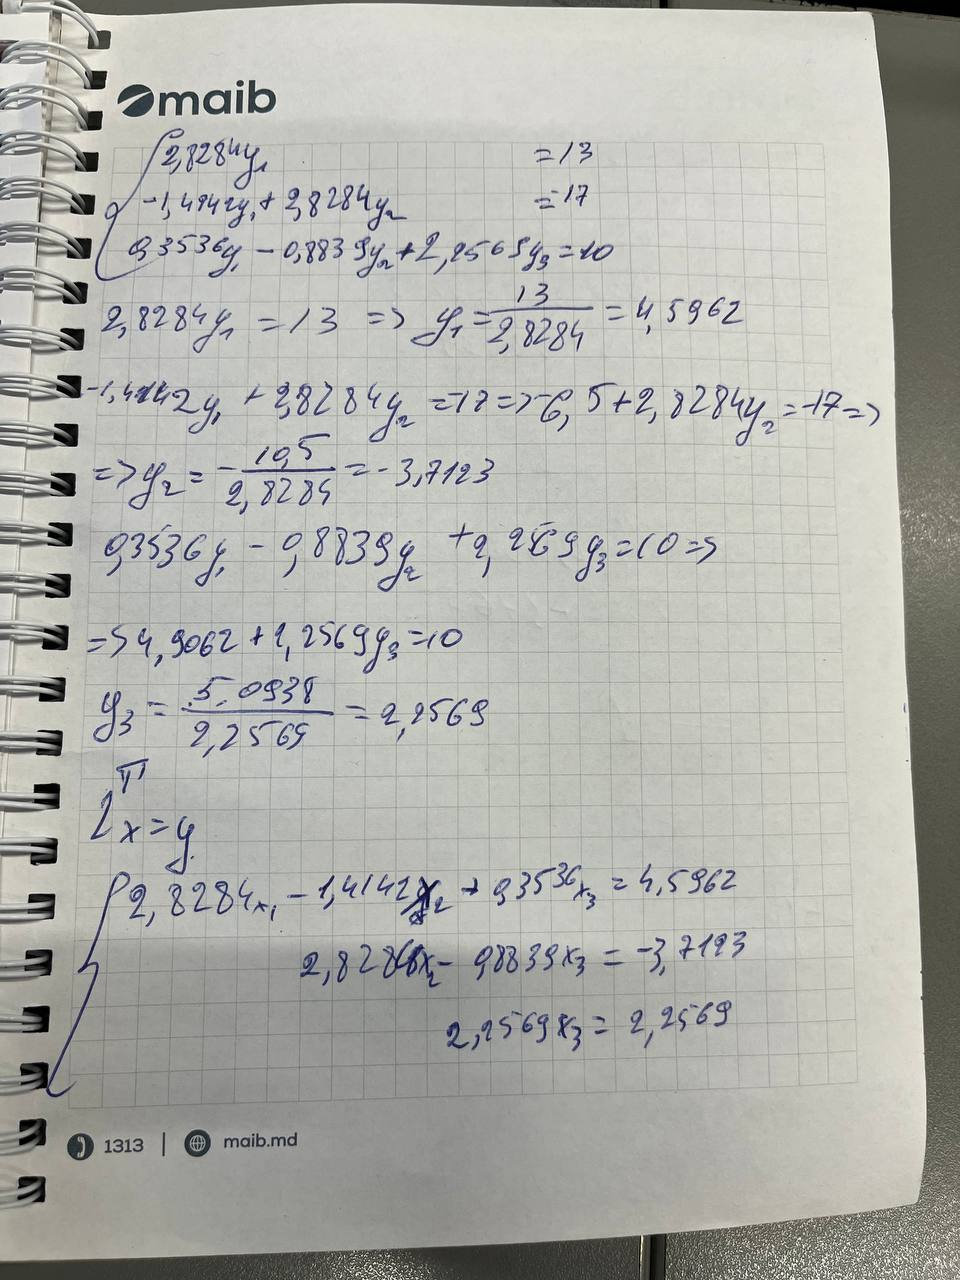 maib
2,8284y₁ = 13
-1,4142y₁ + 2,8284y₂ = 17
0,3536y₁ - 0,8839y₂ + 2,2569y₃ = 10
2,8284y₁ = 13 => y₁ = 13/2,8284 = 4,5962
-1,4142y₁ + 2,8284y₂ = -17 => -6,5 + 2,8284y₂ = -17 =>
=> y₂ = - 10,5/2,8284 = -3,7123
0,3536y₁ - 0,8839y₂ + 2,2569y₃ = 10 =>
=> 4,9062 + 2,2569y₃ = 10
y₃ = 5,0938/2,2569 = 2,2569
Lᵀx = y
2,8284x₁ - 1,4142x₂ + 0,3536x₃ = 4,5962
2,8284x₂ - 0,8839x₃ = -3,7123
2,2569x₃ = 2,2569
1313 | maib.md